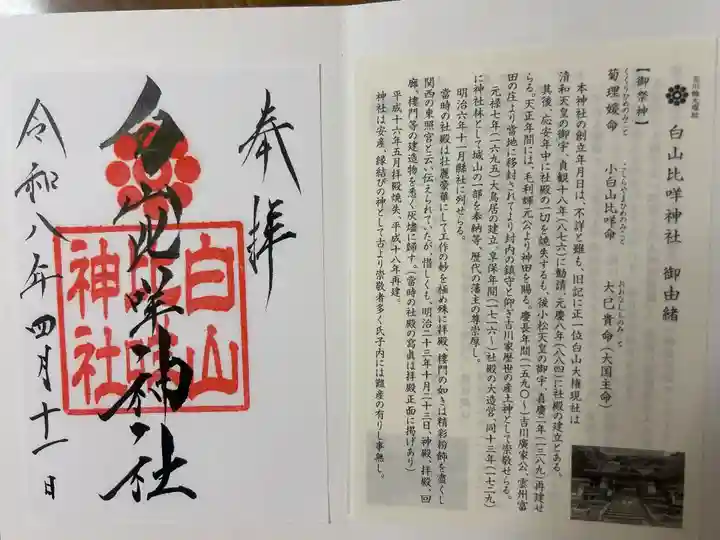 吉川他九曜紋
白山比咩神社 御由緒
【御祭神】
くくりひめのみこと
菊理媛命
こしらやまひめのみこと
小白山比咩命
おおなむちのみこと
大巳貴命(大国主命)
本神社の創立年月日は、不詳と雖も、旧記に正一位白山大権現社は
清和天皇の御宇、貞観十八年(八七六)に勧請、元慶八年(八八四)に社殿の建立とある。
其後、応安年中に社殿の一切を焼失するも、後小松天皇の御宇、喜慶二年(一三八九)再建せ
らる。天正年間には、毛利輝元公より神田を賜る。慶長年間(一五九〇~)吉川廣家公、雲州富
田の庄より當地に移封されてより封内の鎮守と仰ぎ吉川家歴世の産土神として崇敬せらる。
元禄七年(一六九五)大鳥居の建立、享保年間(一七一六~)社殿の大造営、同十三年(一七二九)
に神社林として城山の一部を奉納等、歴代の藩主の尊崇厚し。
明治六年十一月縣社に列せらる。
當時の社殿は壮麗豪華にして工作の妙を極め殊に拝殿、楼門の如きは精彩粉飾を盡くし
関西の東照宮と云い伝えられていたが、惜しくも、明治二十三年十月二十三日、神殿、拝殿、回
廊、楼門等の建造物を悉く灰燼に歸す。(當時の社殿の寫眞は拝殿正面に掲げあり)
平成十六年五月拝殿焼失、平成十八年再建。
神社は安産、縁結びの神として古より崇敬者多く氏子内には難産の有りし事無し。
奉拝
白山比咩神社
白山比咩神社
令和八年四月十一日